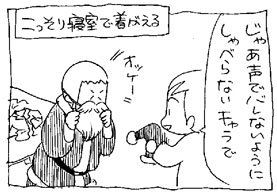 こっそり寝室で着がえる
じゃあ声でバレないように
しゃべらないキャラで
オッケー